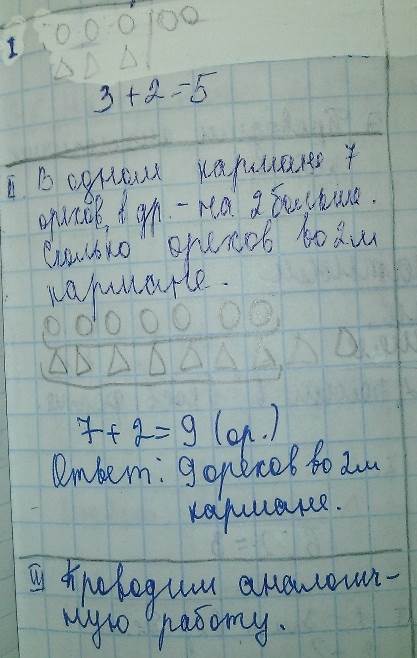 I
3 + 2 = 5
II. В одном кармане 7
орехов, в др. - на 2 больше.
Сколько орехов во 2м
кармане.
7 + 2 = 9 (ор.)
Ответ: 9 орехов во 2м
кармане.
III Проводим аналогич-
ную работу.